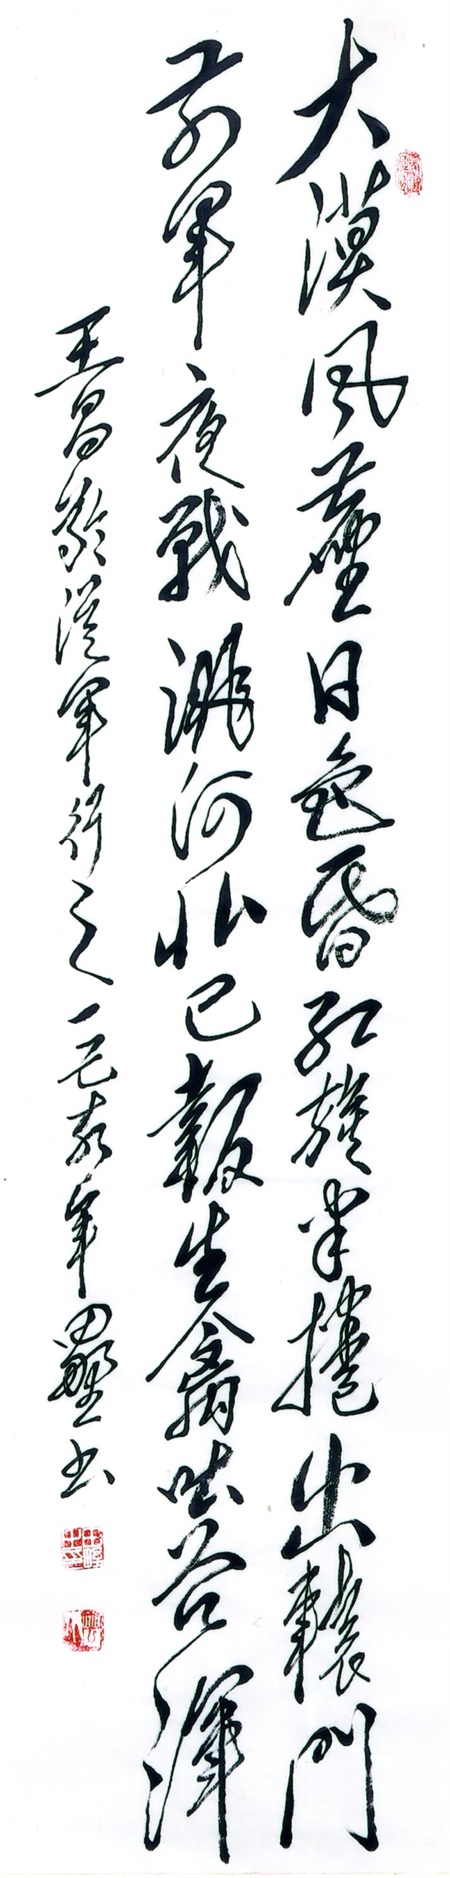 大漠風塵日色昏紅旗半捲出轅門
前軍夜戰洮河北已報生禽吐谷渾
王昌齡從軍行之一己亥年